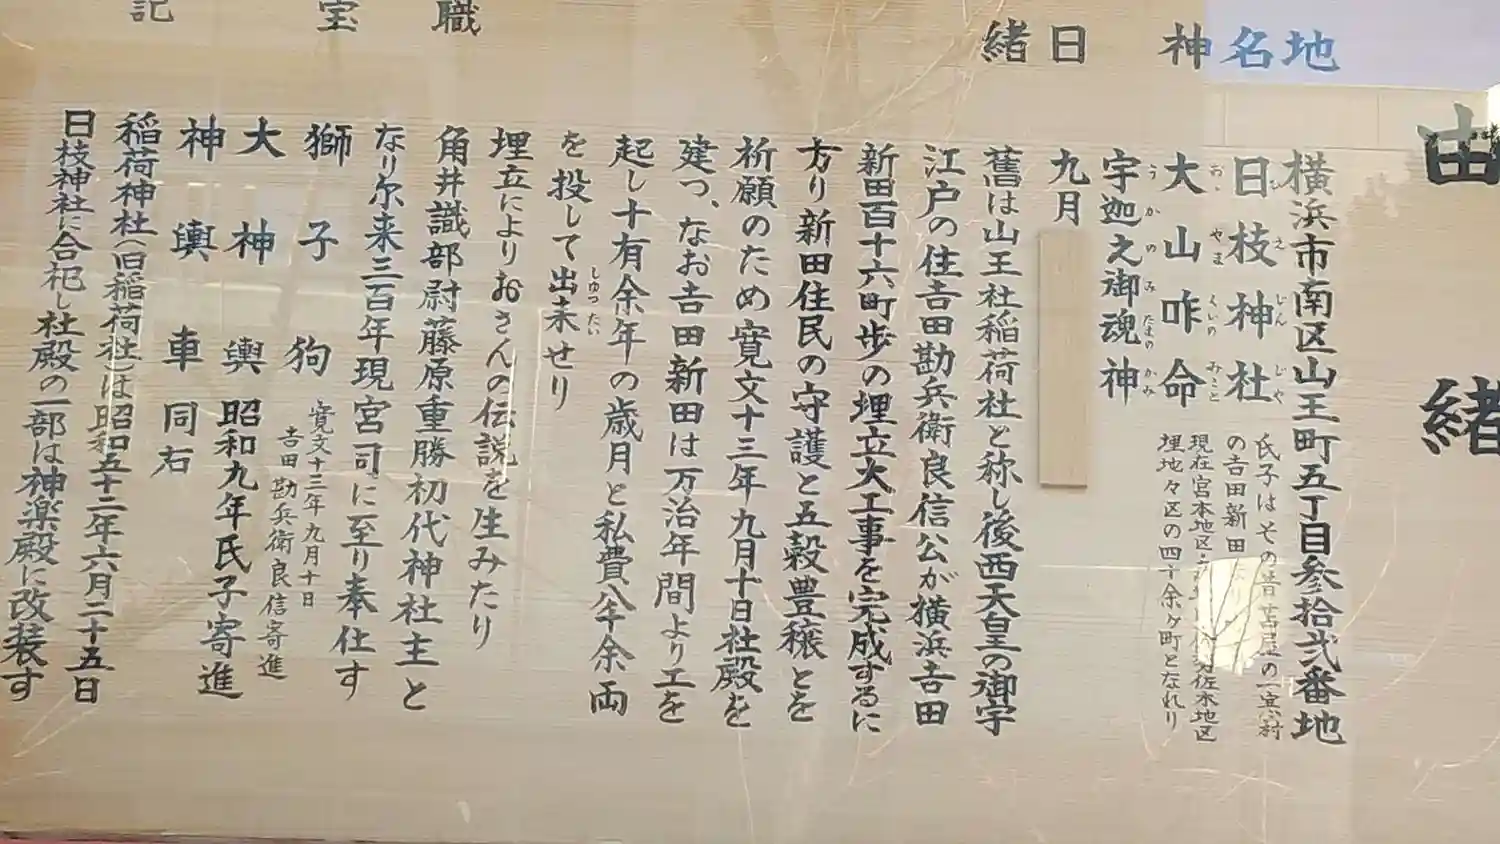 由緒
地 横浜市南区山王町五丁目参拾弐番地
名 日枝神社 氏子はその昔苫屋の一寒村
の吉田新田
現在宮本地区
埋地々区の四十余ヶ町となれり
ひえじんじや
神 大山咋命
おゝやまくいのみこと
宇迦之御魂神
うかのみたまのかみ
日 九月
緒 舊は山王社稲荷社と称し後西天皇の御宇
江戸の住吉田勘兵衛良信公が横浜吉田
新田百十六町歩の埋立大工事を完成するに
方り新田住民の守護と五穀豊穣とを
祈願のため寛文十三年九月十日社殿を
建つ、なお吉田新田は万治年間より工を
起し十有余年の歳月と私費八千余両
を投して出来せり
しゆつたい
埋立によりおさんの伝説を生みたり
職 角井識部尉藤原重勝初代神社主と
なり尓来三百年現宮司に至り奉仕す
宝 獅子狗 寛文十三年九月十日
吉田勘兵衛良信寄進
大神輿 昭和九年氏子寄進
神輿車 同右
記 稲荷神社(旧稲荷社)は昭和五十二年六月二十五日
日枝神社に合祀し社殿の一部は神楽殿に改装す